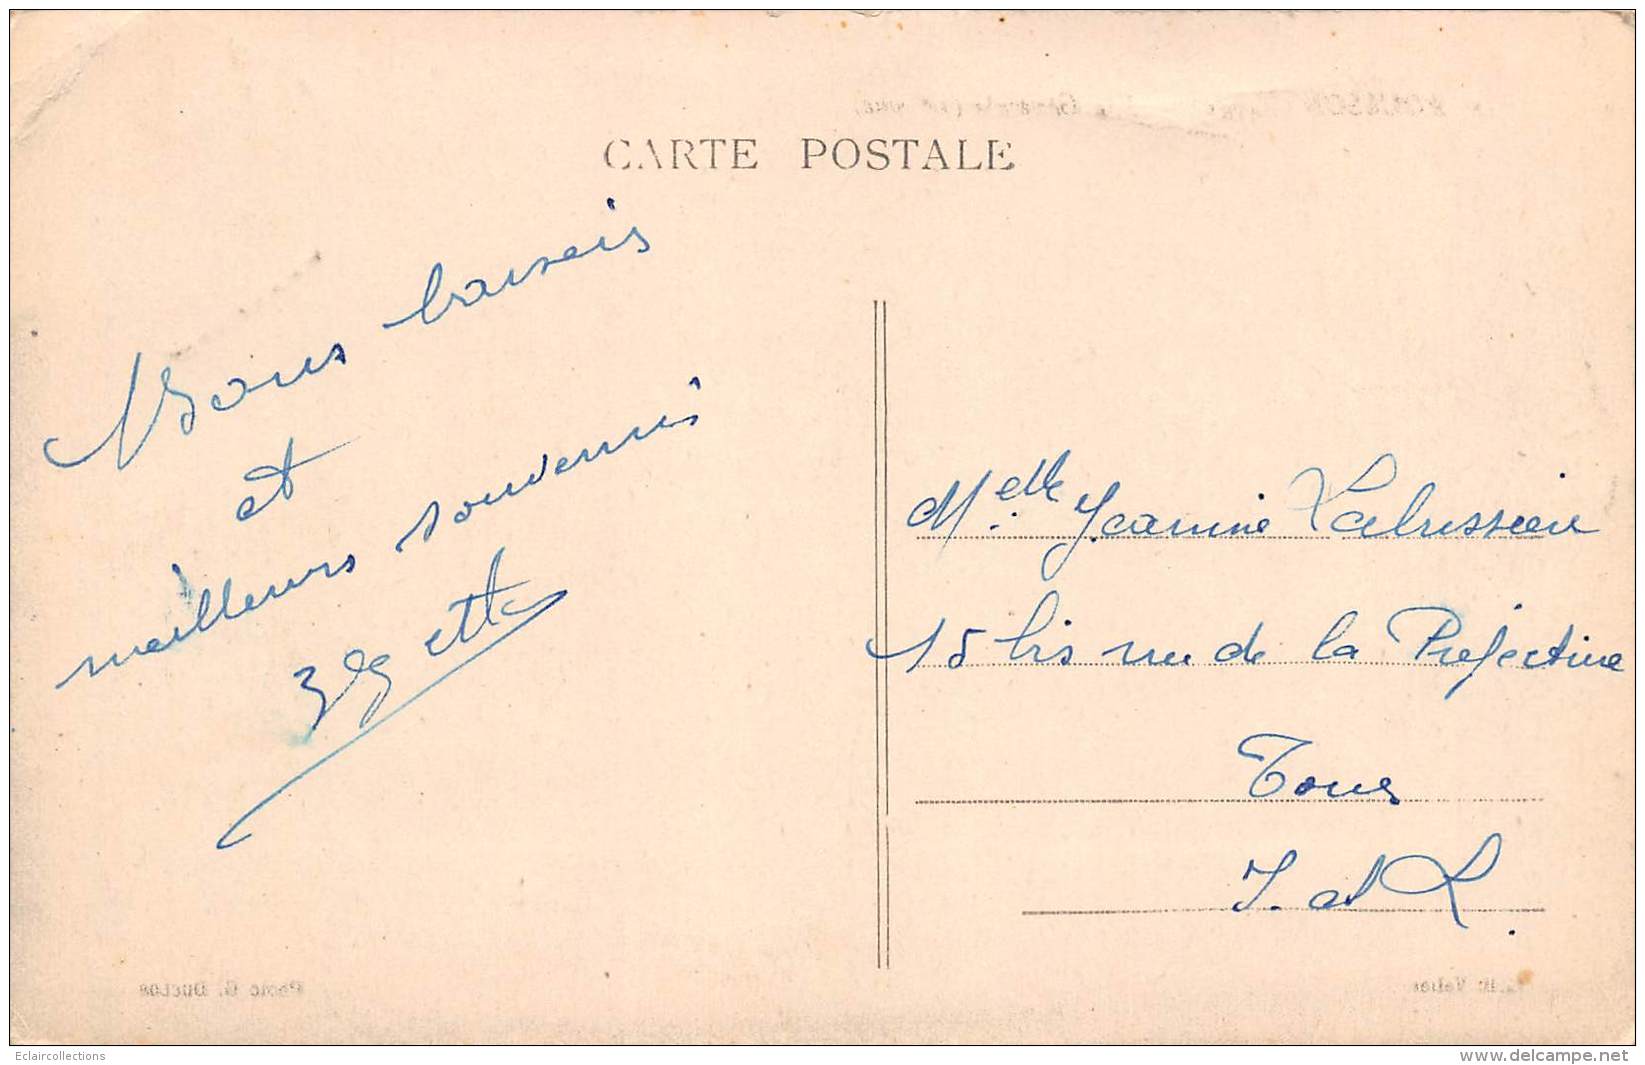 CARTE POSTALE
Bons baisers
et
meilleurs souvenirs
Melle Jeanine Labussière
15 bis rue de la Préfecture
Tours
I. et L.
Photo G. Duclos
Eclaircollections
www.delcampe.net